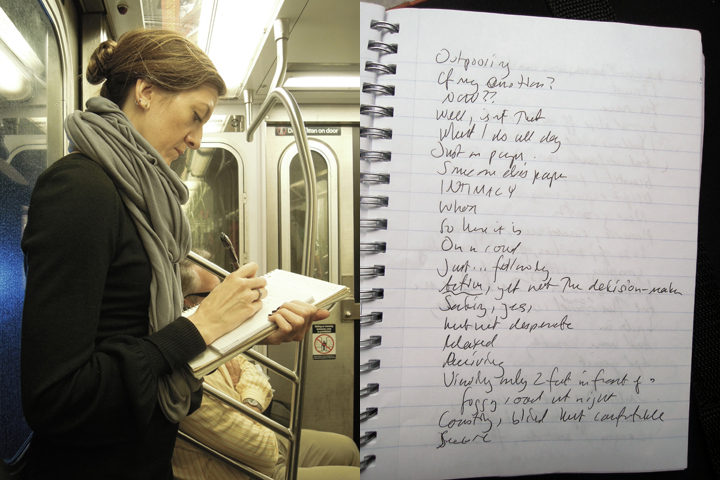 Outpouring
Of my emotion?
Now??
Well, isn't That
What I do all day
Just on paper.
Since on this paper
INTIMACY
When
So here it is
On a road
Just... following
Active, yet not The decision-maker
Seeking, yes,
but not desperate
Relaxed
Receiving
Viewing only 2 feet in front of a
foggy road at night
Coasting, blind but comfortable
Secure